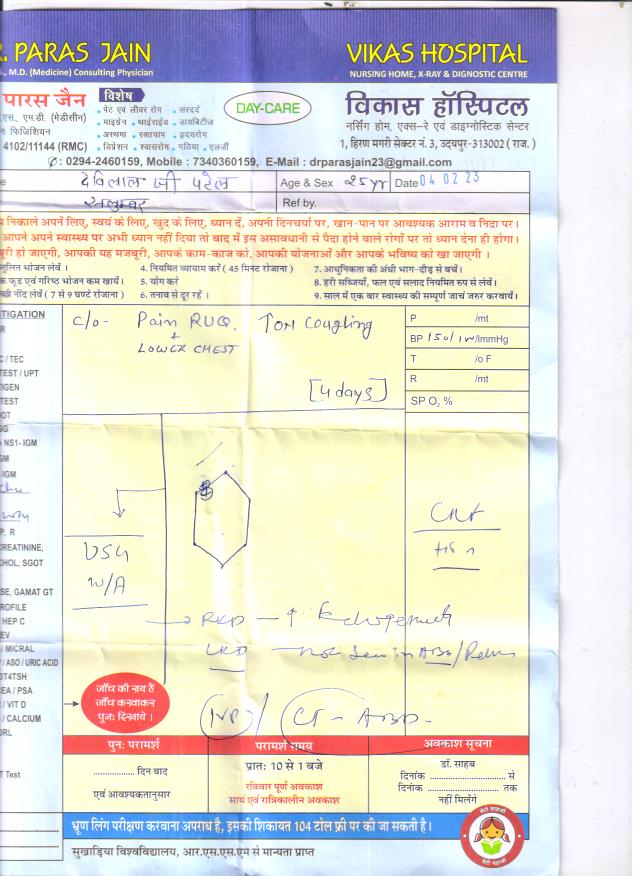 R. PARAS JAIN
VIKAS HOSPITAL
., M.D. (Medicine) Consulting Physician
NURSING HOME, X-RAY & DIGNOSTIC CENTRE
पारस जैन
विशेष
• पेट एवं लीवर रोग • सरदर्द
• माइग्रेन • थाईराईड • डायबिटीज
• अस्थमा • रक्तचाप • हृदयरोग
• डिप्रेशन • श्वासरोग • गठिया • एलर्जी
DAY-CARE
विकास हॉस्पिटल
नर्सिंग होम, एक्स-रे एवं डाइग्नोस्टिक सेन्टर
एस. एम.डी. (मेडीसीन)
फिजिशियन
4102/11144 (RMC)
1, हिरण मगरी सेक्टर नं. 3, उदयपुर-313002 (राज.)
: 0294-2460159, Mobile : 7340360159, E-Mail : drparasjain23@gmail.com
देवीलाल जी पटेल
Age & Sex 25yr
Date 04 02 23
सलुम्बर
Ref by.
निकाले अपनें लिए, स्वयं के लिए, खुद के लिए, ध्यान दें, अपनी दिनचर्या पर, खान-पान पर आवश्यक आराम व निद्रा पर।
आपने अपने स्वास्थ्य पर अभी ध्यान नहीं दिया तो बाद में इस असावधानी से पैदा होने वाले रोगों पर तो ध्यान देना ही होगा।
हो जाएगी, आपकी यह मजबूरी, आपके काम-काज को, आपकी योजनाओं और आपके भविष्य को खा जाएगी ।
भोजन लेवें ।
4. नियमित व्यायाम करें ( 45 मिनट रोजाना )
7. आधुनिकता की अंधी भाग-दौड़ से बचें।
फूड एवं गरिष्ठ भोजन कम खायें।
5. योग करें
8. हरी सब्जियाँ, फल एवं सलाद नियमित रुप से लेवें।
नींद लेवें ( 7 से 9 घण्टे रोजाना )
6. तनाव से दूर रहें ।
9. साल में एक बार स्वास्थ्य की सम्पूर्ण जाचं जरुर करवायें।
TIGATION
C/o- Pain RUQ.
+
LOWER CHEST
Coughing
[4 days]
P /mt
BP 150/ /ImmHg
T /o F
R /mt
SP O₂ %
C / TEC
TEST / UPT
IGEN
TEST
OT
GG
NS1- IGM
GM
IGM
P. R
CREATININE,
CHOL, SGOT
SE, GAMAT GT
ROFILE
HEP C
EV
/ MICRAL
/ ASO / URIC ACID
3T4TSH
EA / PSA
/ VIT D
/ CALCIUM
DRL
T Test
USG
W/A
RKD - ↑ Echogenicity
LKD not seen in ABD/Pelvis
NP / CT- ABD-
जाँच की गय हैं
जाँच करवाकर
पुनः दिखावे ।
पुनः परामर्श
परामर्श समय
अवकाश सूचना
................ दिन बाद
एवं आवश्यकतानुसार
प्रातः 10 से 1 बजे
रविवार पूर्ण अवकाश
सायं एवं रात्रिकालीन अवकाश
डॉ. साहब
दिनांक ........................ से
दिनांक ........................ तक
नहीं मिलेंगे
भ्रूण लिंग परीक्षण करवाना अपराध है, इसकी शिकायत 104 टोल फ्री पर की जा सकती है।
सुखाड़िया विश्वविद्यालय, आर.एस.एस.एम से मान्यता प्राप्त
बेटी बचाओ
बेटी पढ़ाओ